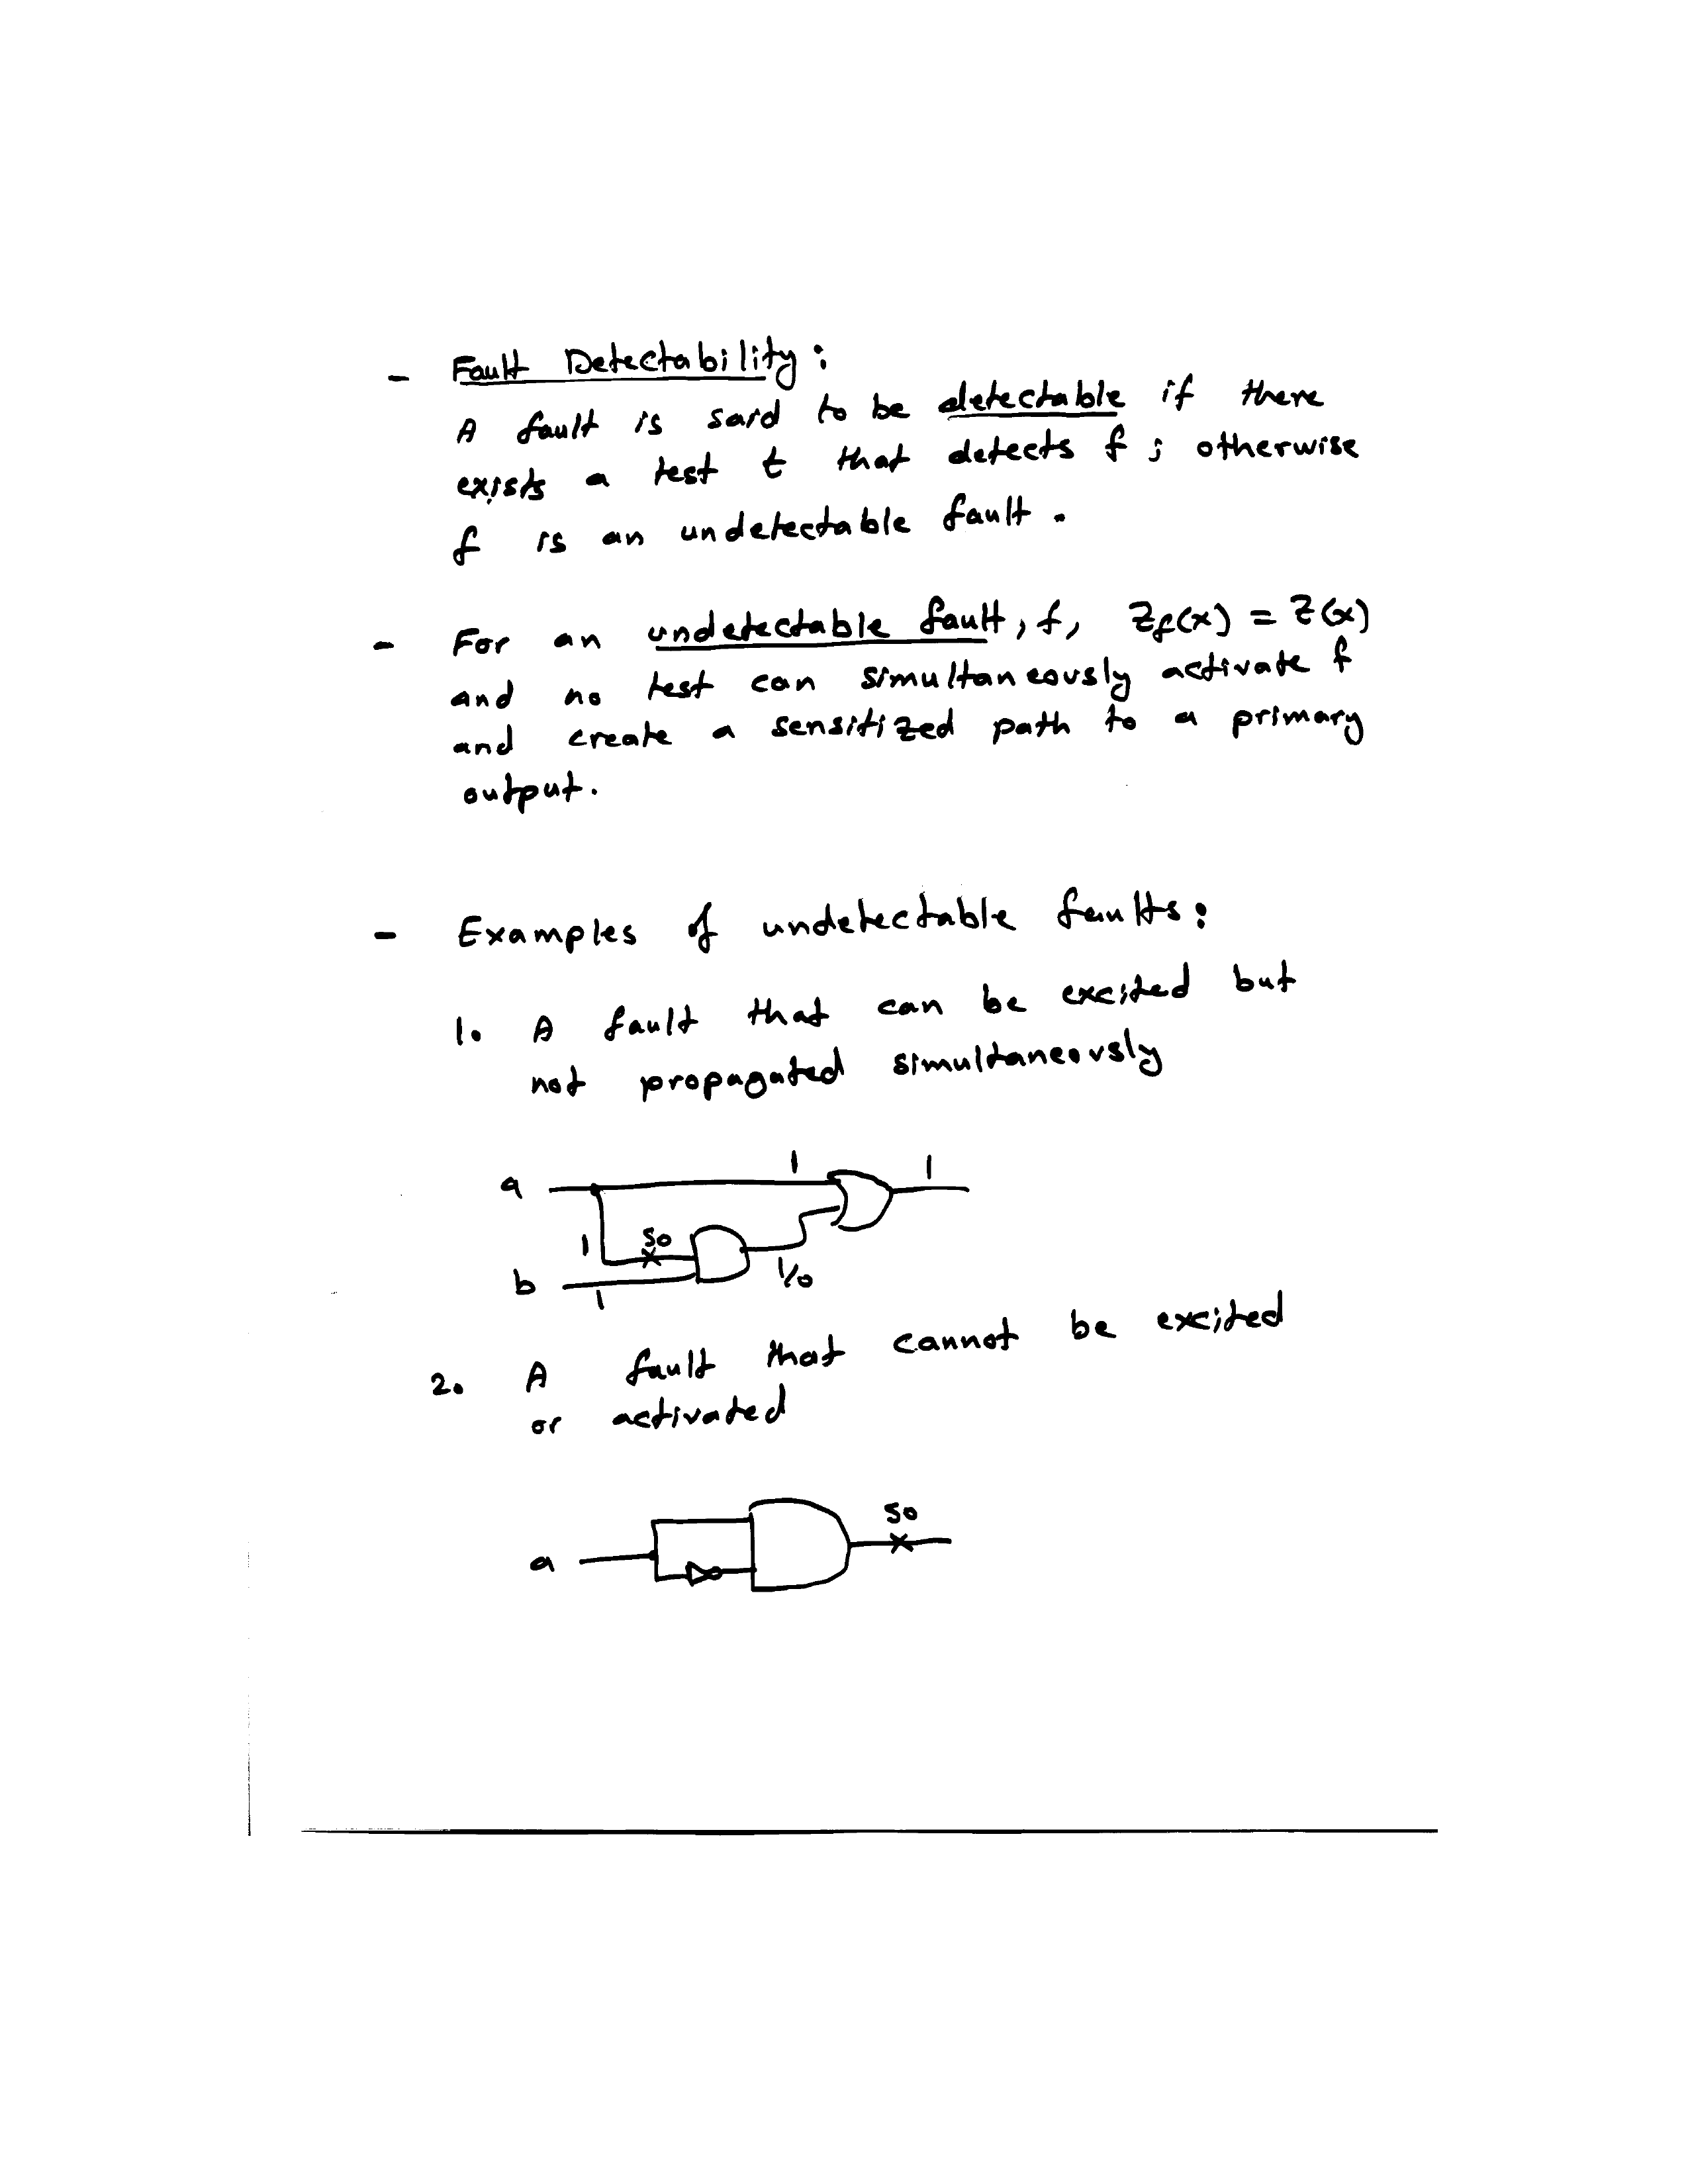 - Fault Detectability:
A fault is said to be detectable if there
exists a test t that detects f ; otherwise
f is an undetectable fault.
- For an undetectable fault, f, Zf(x) = Z(x)
and no test can simultaneously activate f
and create a sensitized path to a primary
output.
- Examples of undetectable faults:
1. A fault that can be excited but
not propagated simultaneously
1 1
a
1 S0
b 1/0
1
2. A fault that cannot be excited
or activated
S0
a